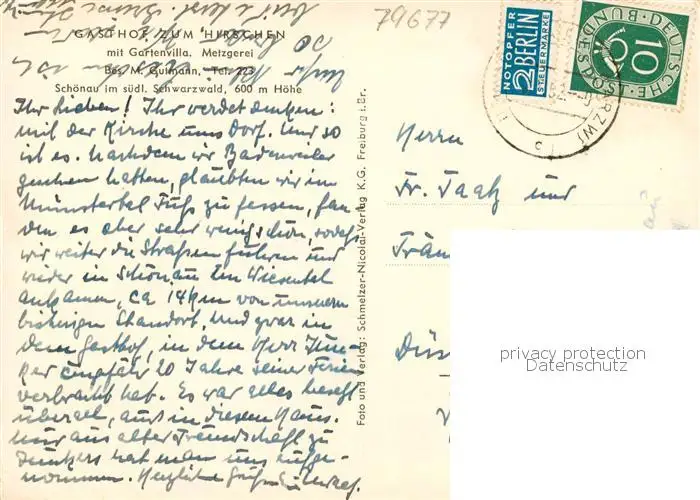 79677
GASTHOF ZUM HIRSCHEN
mit Gartenvilla. Metzgerei
Bes. M. Gutmann, Tel. 223
Schönau im südl. Schwarzwald, 600 m Höhe
Ihr Lieben! Ihr werdet denken:
mit der Kirche ums Dorf. Und so
ist es. Nachdem wir Badenweiler
gesehen hatten, glaubten wir im
Münstertal Fuß zu fassen, fan
den es aber sehr wenig schön, sodass
wir weiter die Straßen fuhren und
wieder in Schönau im Wiesental
ankamen, ca 14 km von unserem
bisherigen Standort. Und zwar in
dem Gasthof, in dem Herr Jun-
ker ungefähr 20 Jahre seine Ferien
verbracht hat. Es war alles besetzt
überall, auch in diesem Haus.
Nur aus alter Freundschaft zu
Junkers hat man uns aufge-
nommen. Herzliche Grüße
Foto und Verlag: Schmelzer-Nicolai-Verlag K.G. Freiburg i. Br.
NOTOPFER
2 BERLIN
STEUERMARKE
DEUTSCHE BUNDESPOST
10
Herrn
Fr. Taatz und
Düs
privacy protection
Datenschutz